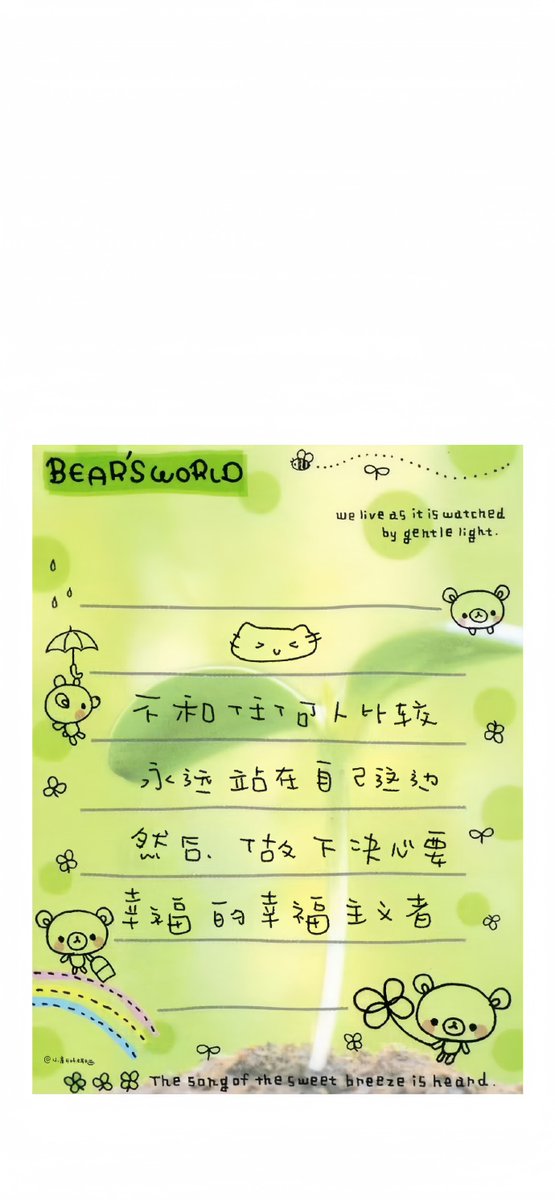 BEAR'S WORLD
we live as it is watched
by gentle light.
不和任何人比较
永远站在自己这边
然后、做下决心要
幸福的幸福主义者
The song of the sweet breeze is heard.